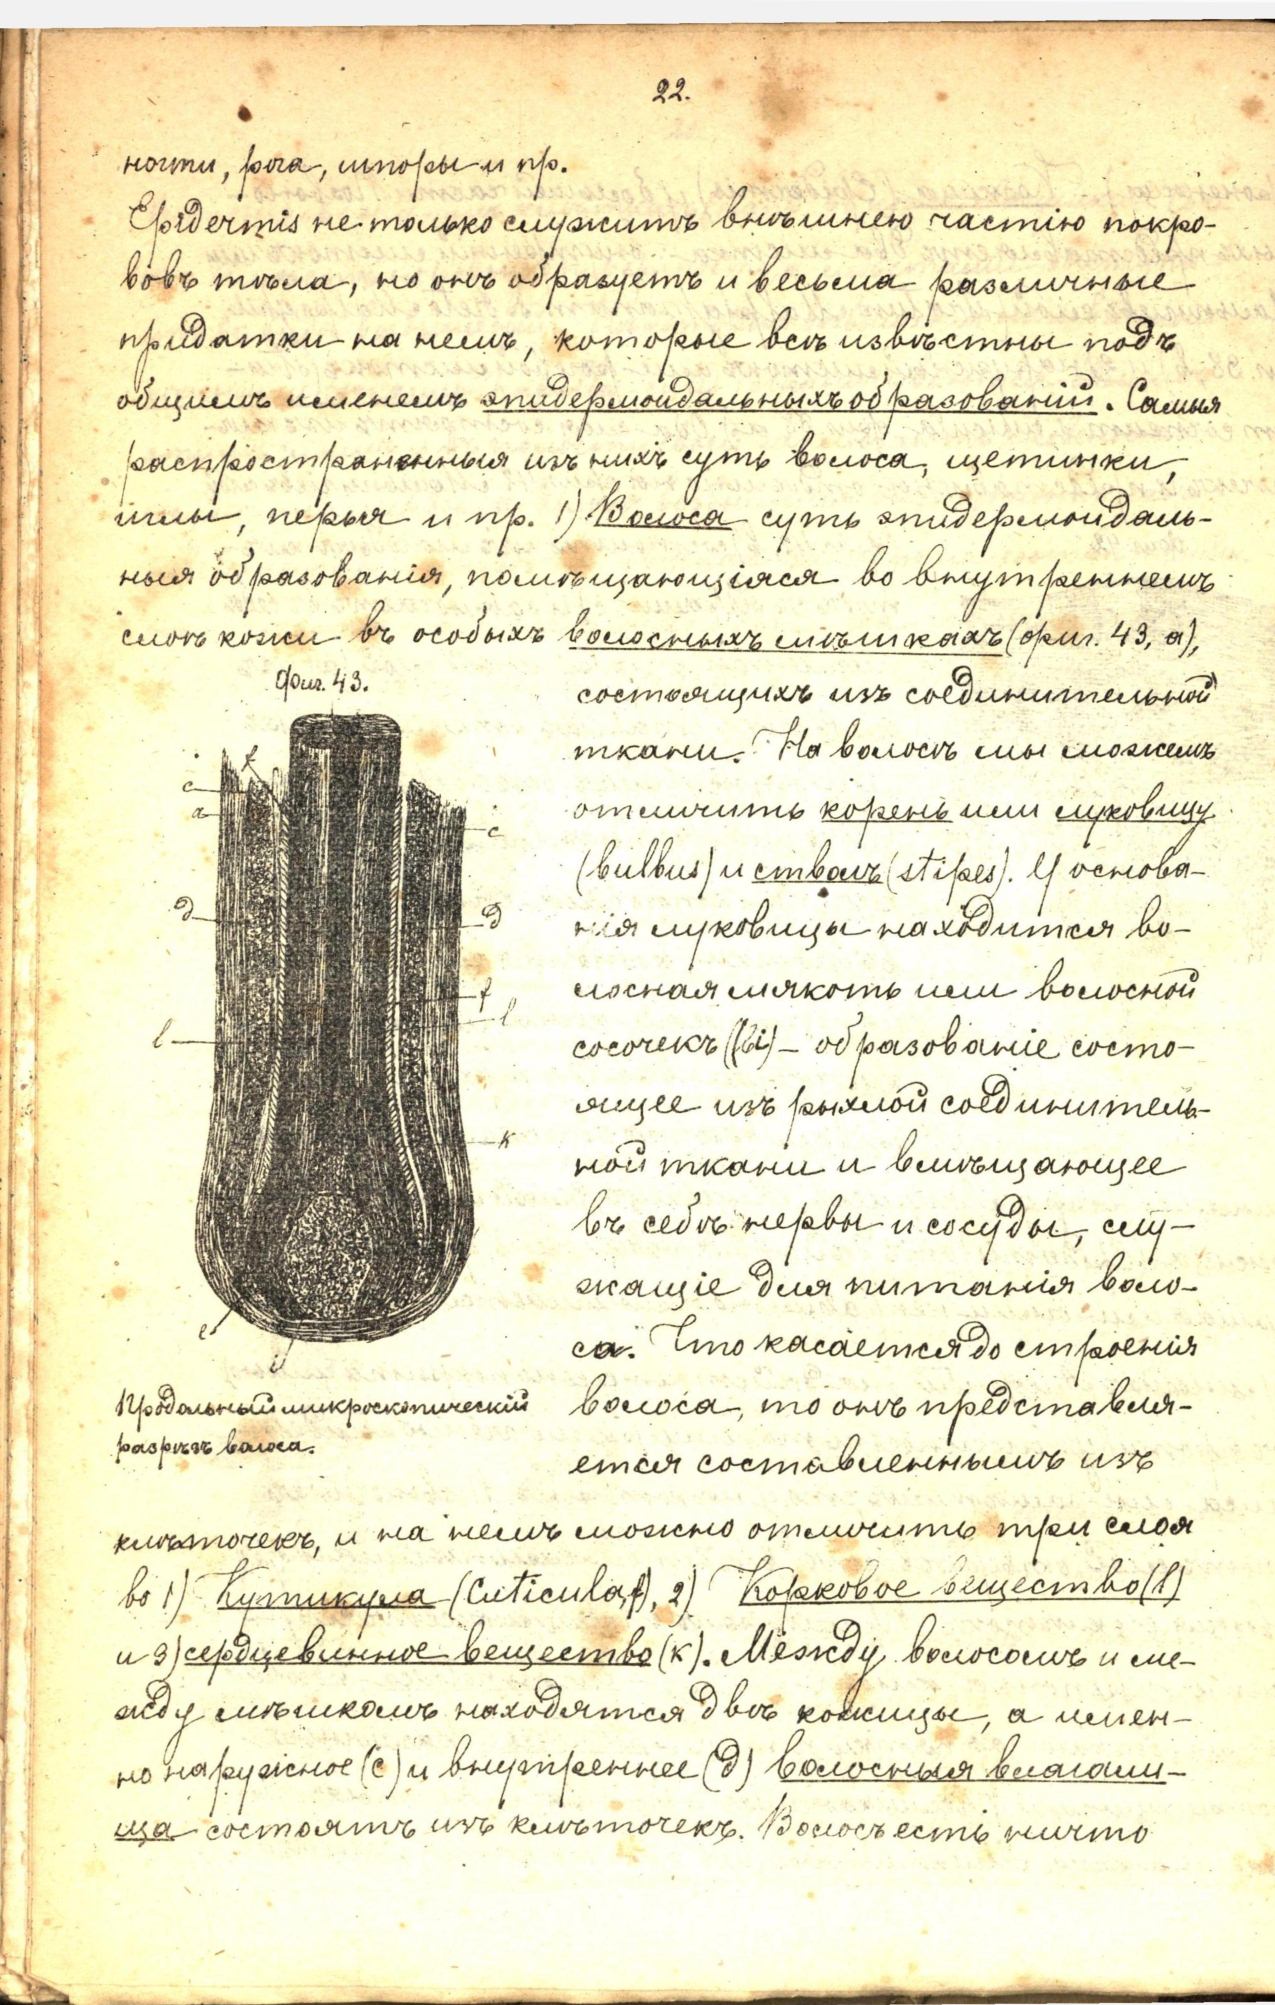 22.
ногти, рога, шпоры и пр.
Epidermis не только служитъ внѣшнею частію покро-
вовъ тѣла, но онъ образуетъ и весьма различные
придатки на немъ, которые всѣ извѣстны подъ
общимъ именемъ эпидермоидальныхъ образованій. Самыя
распространенныя изъ нихъ суть волоса, щетинки,
иглы, перья и пр. 1) Волоса суть эпидермоидаль-
ныя образованія, помѣщающіяся во внутреннемъ
слоѣ кожи въ особыхъ волосныхъ мѣшкахъ (фиг. 43, а),
Фиг. 43.
f
c
a
c
д
д
f
l
l
к
e
i
Продольный микроскопическій
разрѣзъ волоса.
состоящихъ изъ соединительной
ткани. На волосѣ мы можемъ
отличить корень или луковицу
(bulbus) и стволъ (stipes). У основа-
нія луковицы находится во-
лосная мякоть или волосной
сосочекъ – образованіе состо-
ящее изъ рыхлой соединитель-
ной ткани и вмѣщающее
въ себѣ нервы и сосуды, слу-
жащіе для питанія воло-
са. Что касается до строенія
волоса, то онъ представля-
ется составленнымъ изъ
клѣточекъ, и на немъ можно отличить три слоя
во 1) Кутикула (Cuticula, f), 2) Корковое вещество (l)
и 3) сердцевинное вещество (к). Между волосомъ и ме-
жду мѣшкомъ находятся двѣ кожицы, а имен-
но наружное (c) и внутреннее (д) волосныя влагали-
ща состоятъ изъ клѣточекъ. Волосъ есть ничто